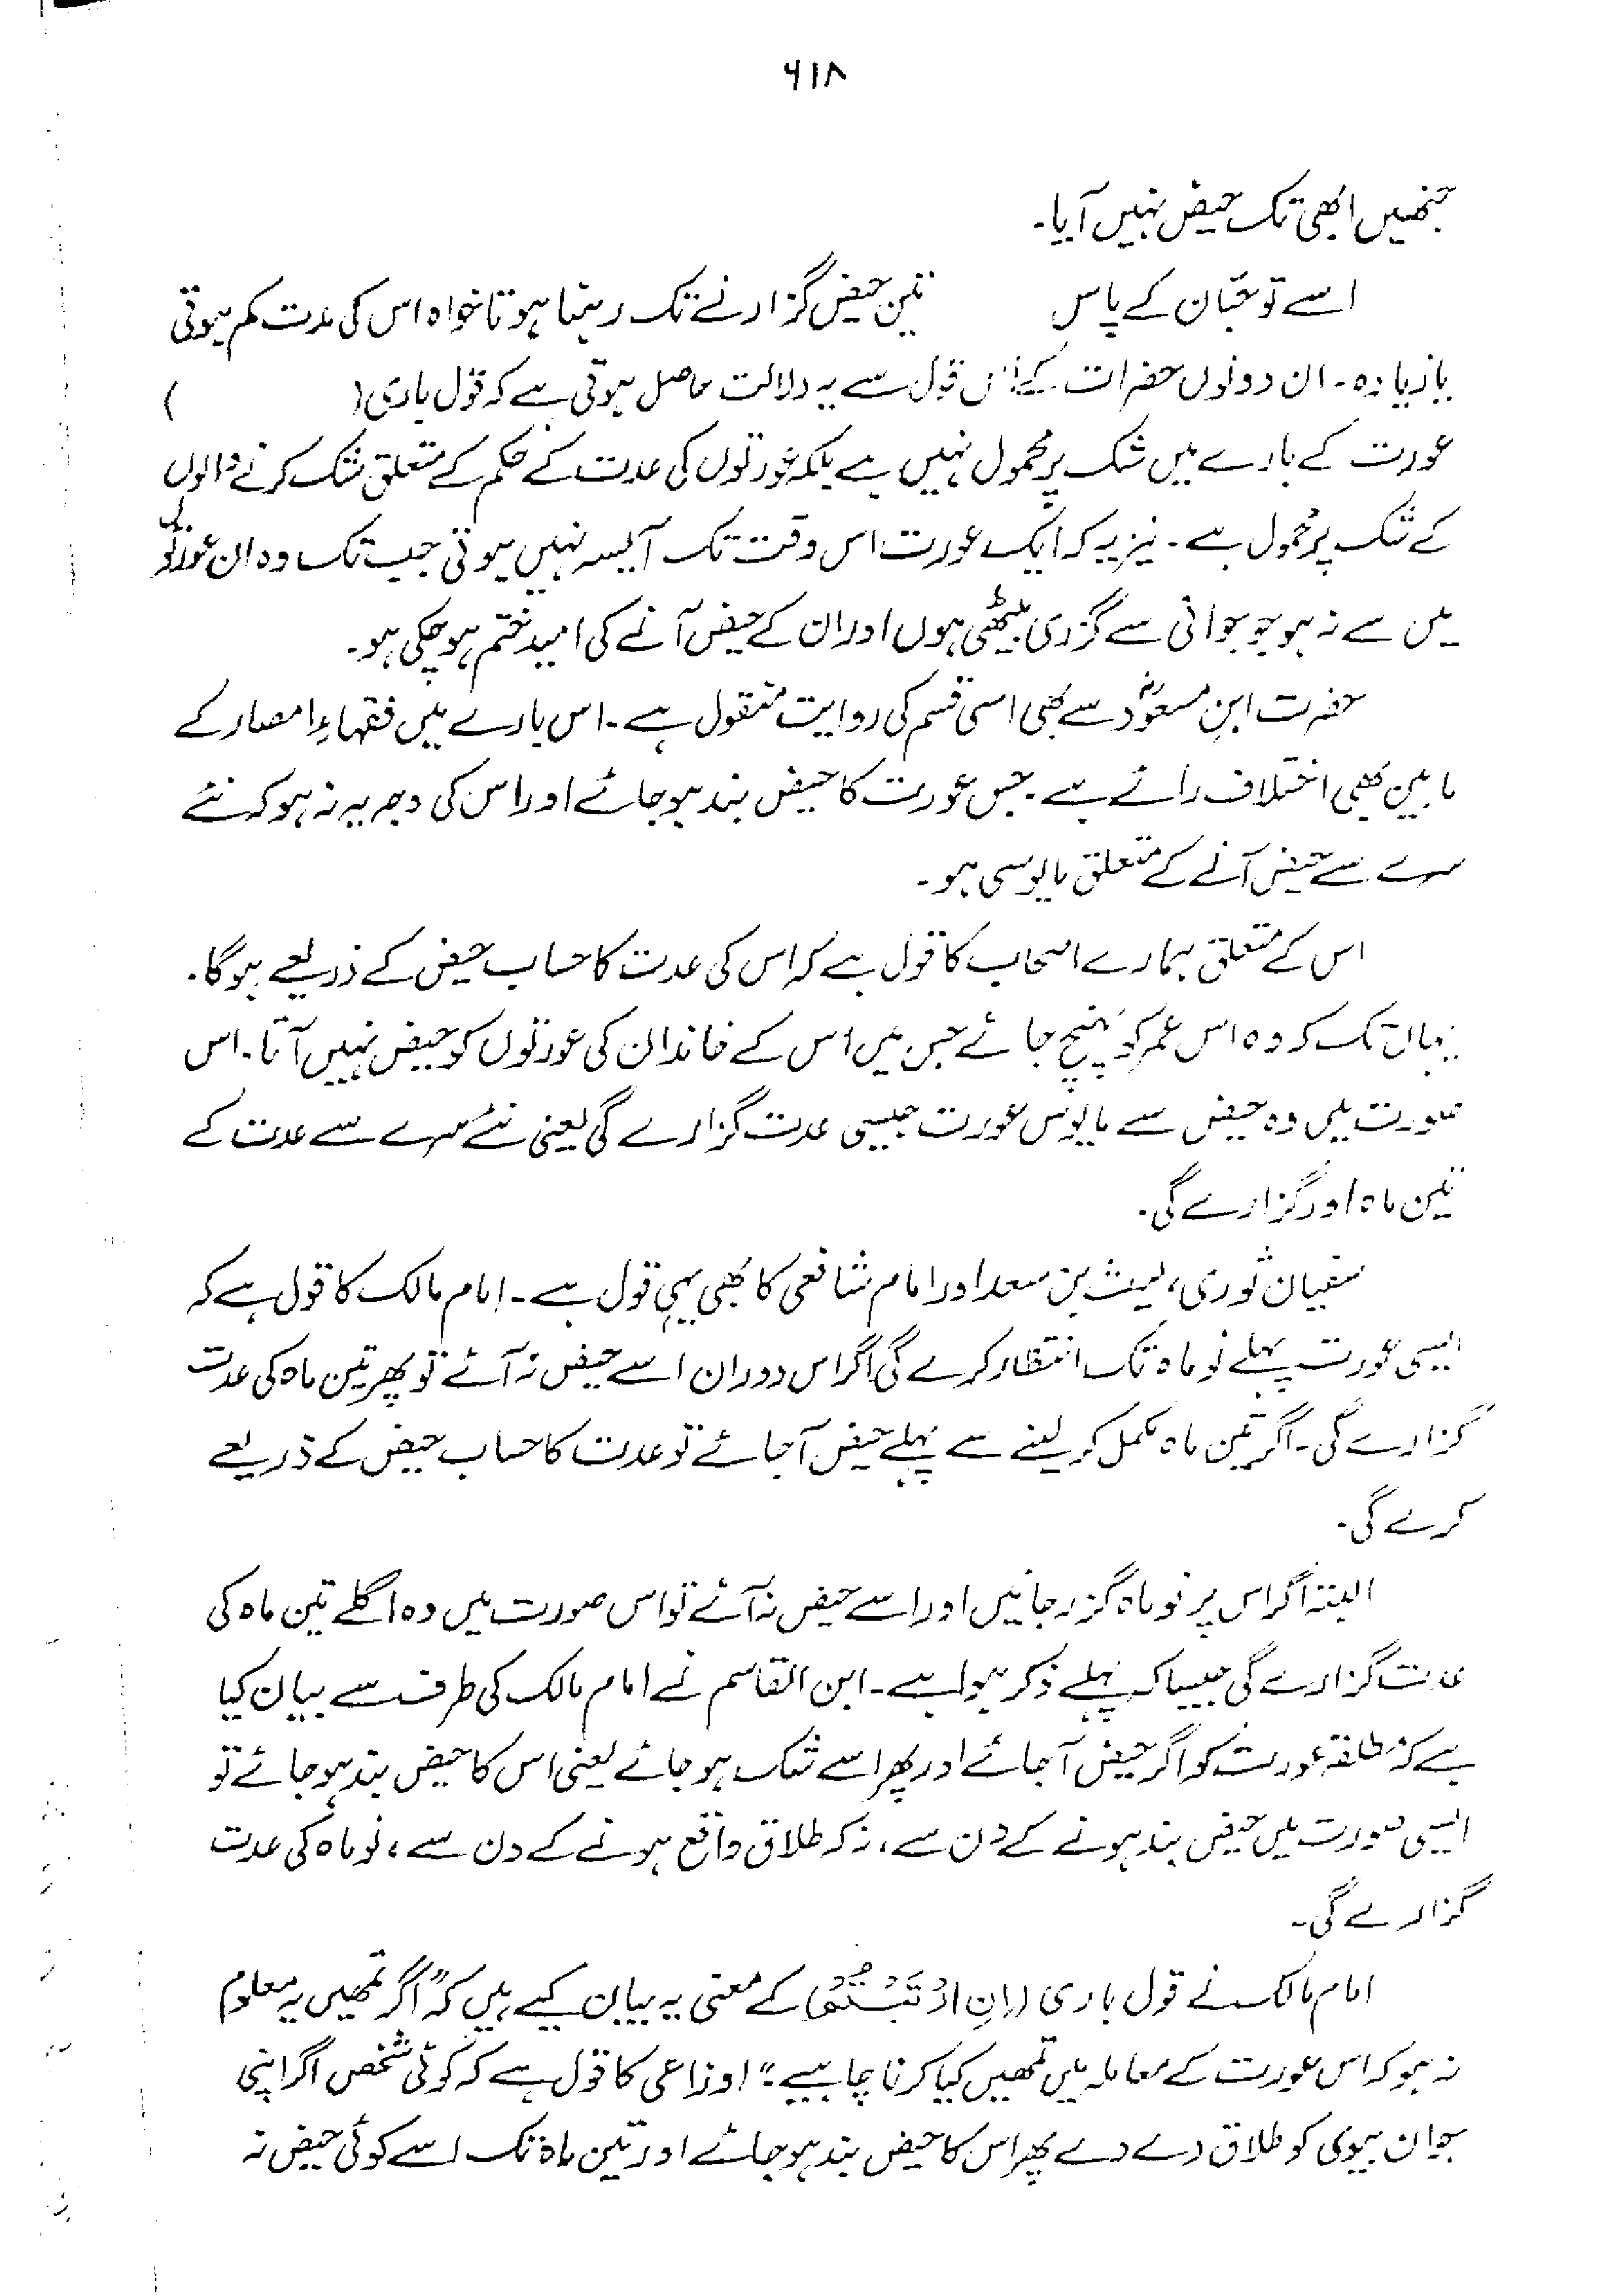 ۶۱۸
جنھیں ابھی تک حیض نہیں آیا۔
اسے تو حبّان کے پاس تین حیض گزارنے تک رہنا ہوتا خواہ اس کی مدت کم ہوتی
یا زیادہ۔ ان دونوں حضرات کے اس قول سے یہ دلالت حاصل ہوتی ہے کہ قول باری ( )
عورت کے بارے میں شک پر محمول نہیں ہے بلکہ عورتوں کی عدت کے حکم کے متعلق شک کرنے والوں
کے شک پر محمول ہے۔ نیز یہ کہ ایک عورت اس وقت تک آئیسہ نہیں ہوتی جب تک وہ ان عورتوں
میں سے نہ ہو جو جوانی سے گزری بیٹھی ہوں اور ان کے حیض آنے کی امید ختم ہو چکی ہو۔
حضرت ابن مسعودؓ سے بھی اسی قسم کی روایت منقول ہے۔ اس بارے میں فقہاءِ امصار کے
مابین بھی اختلاف رائے ہے۔ جس عورت کا حیض بند ہو جائے اور اس کی وجہ یہ نہ ہو کہ نئے
سرے سے حیض آنے کے متعلق مایوسی ہو۔
اس کے متعلق ہمارے اصحاب کا قول ہے کہ اس کی عدت کا حساب حیض کے ذریعے ہوگا۔
یہاں تک کہ وہ اس عمر کو پہنچ جائے جس میں اس کے خاندان کی عورتوں کو حیض نہیں آتا۔ اس
صورت میں وہ حیض سے مایوس عورت جیسی عدت گزارے گی یعنی نئے سرے سے عدت کے
تین ماہ اور گزارے گی۔
سفیان ثوری، لیث بن سعد اور امام شافعی کا بھی یہی قول ہے۔ امام مالک کا قول ہے کہ
ایسی عورت پہلے نو ماہ تک انتظار کرے گی اگر اس دوران اسے حیض نہ آئے تو پھر تین ماہ کی عدت
گزارے گی۔ اگر تین ماہ مکمل کر لینے سے پہلے حیض آ جائے تو عدت کا حساب حیض کے ذریعے
کرے گی۔
البتہ اگر اس پر نو ماہ گزر جائیں اور اسے حیض نہ آئے تو اس صورت میں وہ اگلے تین ماہ کی
عدت گزارے گی جیسا کہ پہلے ذکر ہوا ہے۔ ابن القاسم نے امام مالک کی طرف سے بیان کیا
ہے کہ مطلقہ عورت کو اگر حیض آ جائے اور پھر اسے شک ہو جائے یعنی اس کا حیض بند ہو جائے تو
ایسی صورت میں حیض بند ہونے کے دن سے، نہ کہ طلاق واقع ہونے کے دن سے، نو ماہ کی عدت
گزارے گی۔
امام مالک نے قول باری (اِنِ ارْتَبْتُمْ) کے معنی یہ بیان کیے ہیں کہ "اگر تمھیں یہ معلوم
نہ ہو کہ اس عورت کے معاملہ میں تمھیں کیا کرنا چاہیے۔" اوزاعی کا قول ہے کہ کوئی شخص اگر اپنی
جوان بیوی کو طلاق دے دے پھر اس کا حیض بند ہو جائے اور تین ماہ تک اسے کوئی حیض نہ